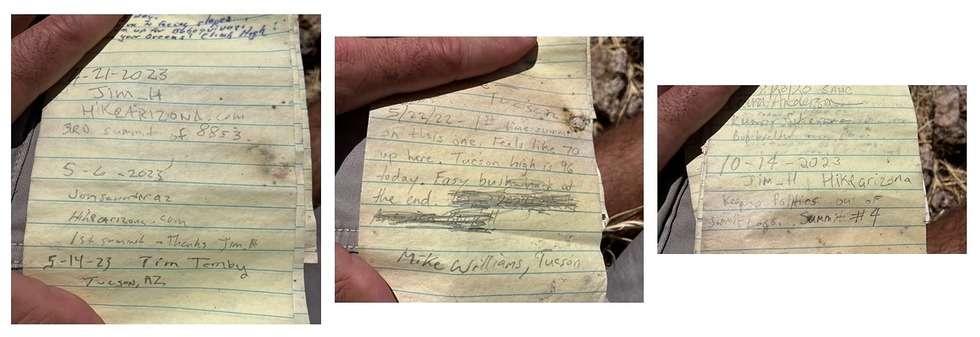 day.
facing slopes.
up for Baboquivari
your Dreams! Climb High!
-21-2023
Jim_H
HikeArizona.com
3RD summit of 8853.
5-6-2023
Jonsamteraz
Hikearizona.com
1st summit - Thanks Jim_H
5-14-23 Tim Tomby
Tucson, AZ
Tucson
5/22/22 1st time summit
on this one. Feels like 70
up here. Tucson high is 96
today. Easy bushwhack at
the end.
Mike Williams, Tucson
SAHC
Anderson
10-14-2023
Jim_H Hikearizona
Keeping Politics out of
Summit Logs. Summit #4